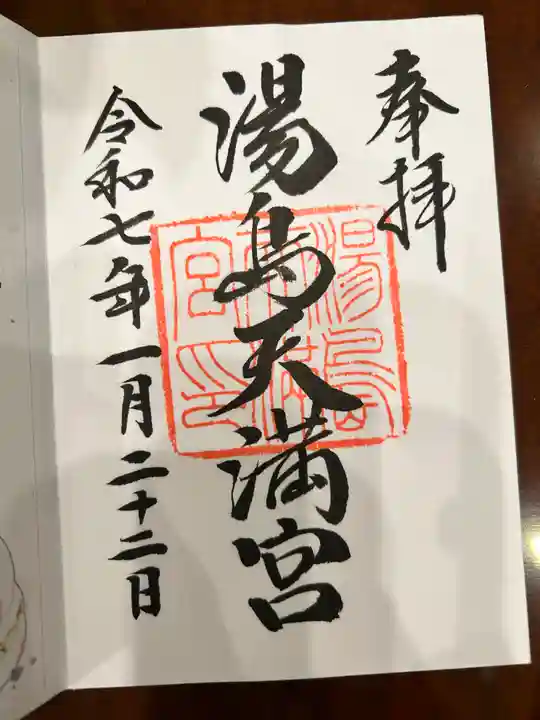 奉拝
湯島天満宮
湯島天満宮印
令和七年一月二十二日